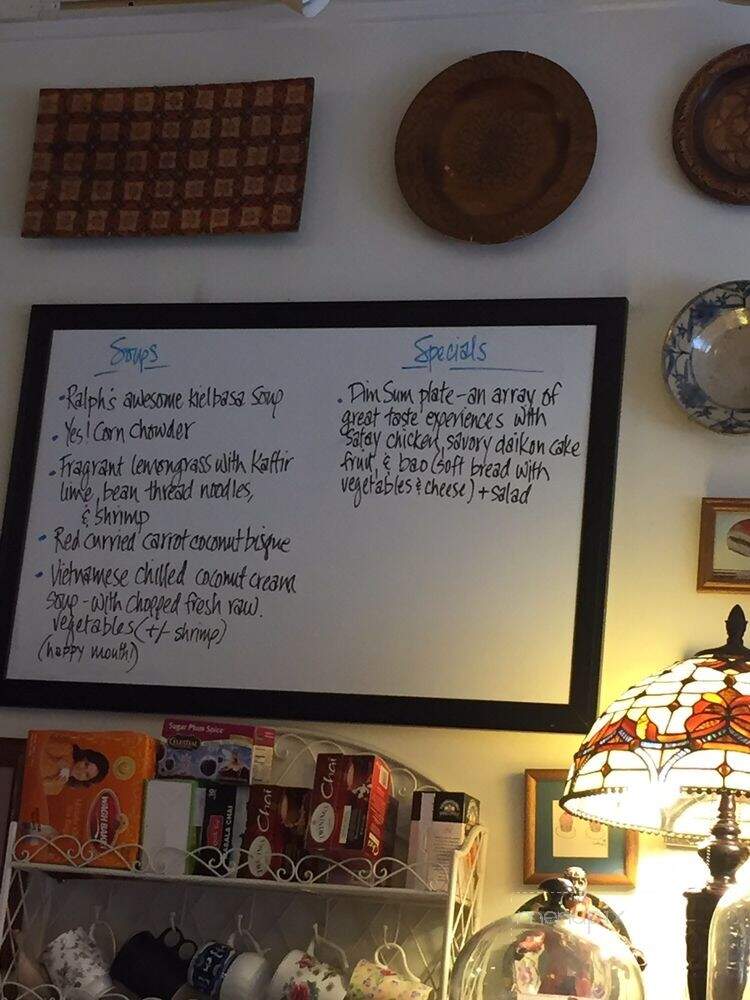 Soups
• Ralph's awesome kielbasa soup
• Yes! Corn chowder
• Fragrant lemongrass with Kaffir
lime, bean thread noodles,
& shrimp
• Red curried carrot coconut bisque
• Vietnamese chilled coconut cream
soup - with chopped fresh raw.
vegetables (+/- shrimp)
(happy mouth!)
Specials
• Dim Sum plate - an array of
great taste experiences with
Satay chicken, savory daikon cake
fruit, & bao (soft bread with
vegetables & cheese) + salad
Sugar Plum Spice
CELESTIAL
WAGH BAKRI
MASALA CHAI
Chai
TWININGS
Chai
TWININGS
menupix